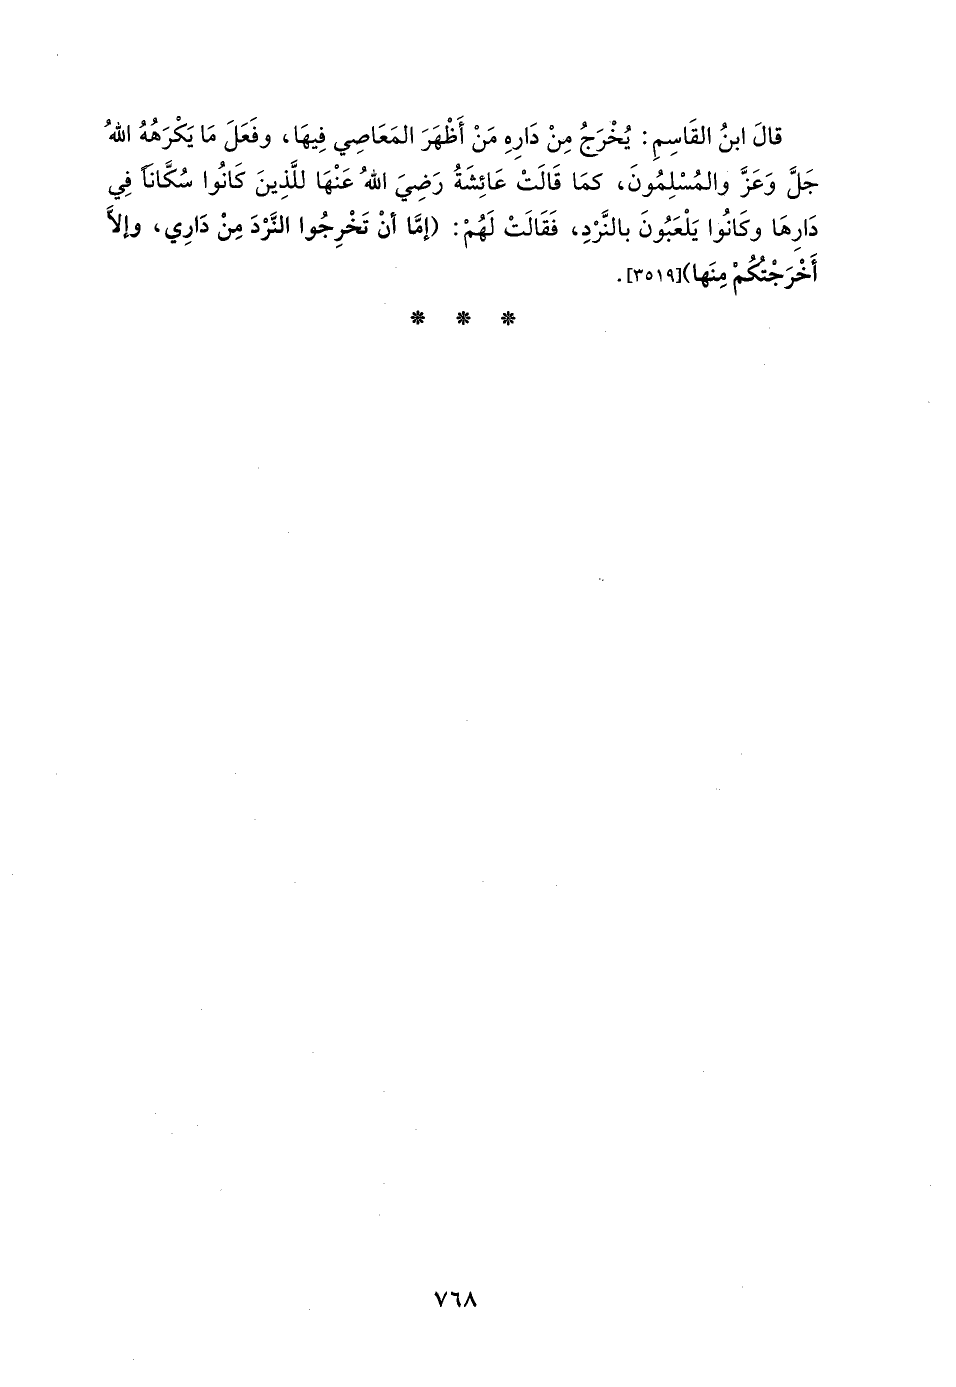 قالَ ابنُ القَاسِمِ: يُخْرَجُ مِنْ دَارِهِ مَنْ أَظْهَرَ المَعَاصِي فِيهَا، وفَعَلَ مَا يَكْرَهُهُ اللهُ
جَلَّ وَعَزَّ والمُسْلِمُونَ، كمَا قَالَتْ عَائِشَةُ رَضِيَ اللهُ عَنْهَا للَّذِينَ كَانُوا سُكَّانَاً فِي
دَارِهَا وكَانُوا يَلْعَبُونَ بالنَّرْدِ، فَقَالَتْ لَهُمْ: (إمَّا أنْ تَخْرِجُوا النَّرْدَ مِنْ دَارِي، وإلاَّ
أَخْرَجْتُكُمْ مِنَها)[٣٥١٩].
* * *
٧٦٨